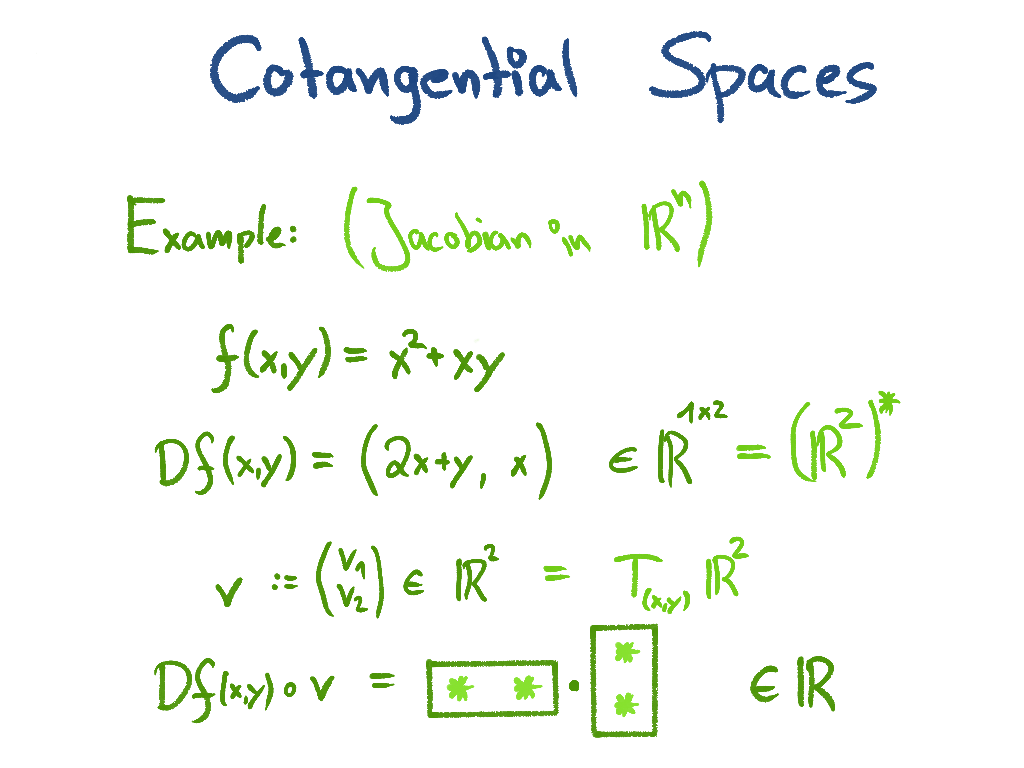 Cotangential Spaces
Example: (Jacobian in ℝⁿ)
f(x,y) = x² + xy
Df(x,y) = (2x+y, x) ∈ ℝ¹ˣ² = (ℝ²)*
v := (v₁ v₂) ∈ ℝ² = T₍ₓ,ᵧ₎ ℝ²
Df(x,y) ∘ v = [* *] · [* *] ∈ ℝ